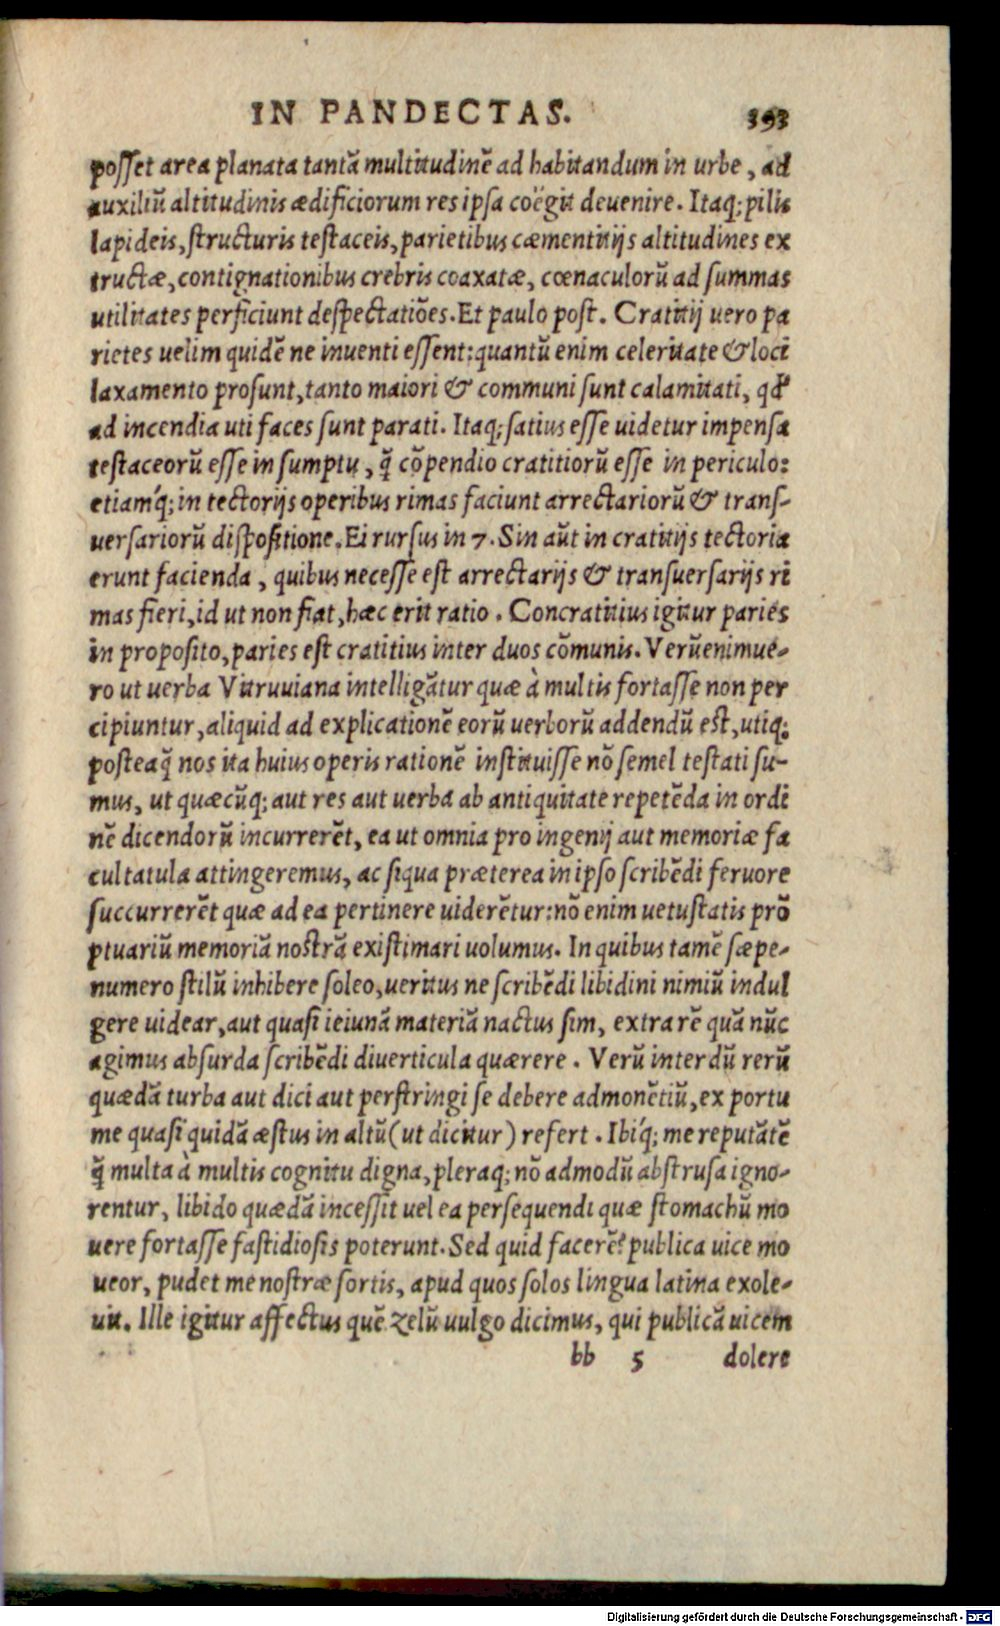 IN PANDECTAS. 393
posset area planata tantā multitudinē ad habitandum in urbe, ad
auxiliū altitudinis ædificiorum res ipsa coëgit devenire. Itaq; pilis
lapideis, structuris testaceis, parietibus cæmentitijs altitudines ex
tructæ, contignationibus crebris coaxatæ, cœnaculorū ad summas
utilitates perficiunt despectatiōes. Et paulo post. Cratitij uero pa
rietes uelim quidē ne inuenti essent: quantū enim celeritate & loci
laxamento prosunt, tanto maiori & communi sunt calamitati, qđ
ad incendia uti faces sunt parati. Itaq; satius esse uidetur impensa
testaceorū esse in sumptu, q̄ cōpendio cratitiorū esse in periculo:
etiamq́; in tectorijs operibus rimas faciunt arrectariorū & trans-
uersariorū dispositione. Et rursus in 7. Sin aūt in cratitijs tectoria
erunt facienda, quibus necesse est arrectarijs & transuersarijs ri
mas fieri, id ut non fiat, hæc erit ratio. Concratitius igitur paries
in proposito, paries est cratitius inter duos cōmunis. Verūenimue-
ro ut uerba Vitruuiana intelligātur quæ à multis fortasse non per
cipiuntur, aliquid ad explicationē eorū uerborū addendū est, utiq;
posteaq̄ nos ita huius operis rationē instituisse nō semel testati su-
mus, ut quæcūq; aut res aut uerba ab antiquitate repetēda in ordi
nē dicendorū incurrerēt, ea ut omnia pro ingenij aut memoriæ fa
cultatula attingeremus, ac siqua præterea in ipso scribēdi feruore
succurrerēt quæ ad ea pertinere uiderētur: nō enim uetustatis prō
ptuariū memoriā nostrā existimari uolumus. In quibus tamē sæpe-
numero stilū inhibere soleo, ueritus ne scribēdi libidini nimiū indul
gere uidear, aut quasi ieiunā materiā nactus sim, extra rē quā nūc
agimus absurda scribēdi diverticula quærere. Verū interdū rerū
quædā turba aut dici aut perstringi se debere admonētiū, ex portu
me quasi quidā æstus in altū (ut dicitur) refert. Ibiq́; me reputātē
q̄ multa à multis cognitu digna, pleraq; nō admodū abstrusa igno-
rentur, libido quædā incessit uel ea persequendi quæ stomachū mo
uere fortasse fastidiosis poterunt. Sed quid facerē? publica uice mo
ueor, pudet me nostræ sortis, apud quos solos lingua latina exole-
uit. Ille igitur affectus quē zelū uulgo dicimus, qui publicā uicem
bb 5 dolere
Digitalisierung gefördert durch die Deutsche Forschungsgemeinschaft - DFG